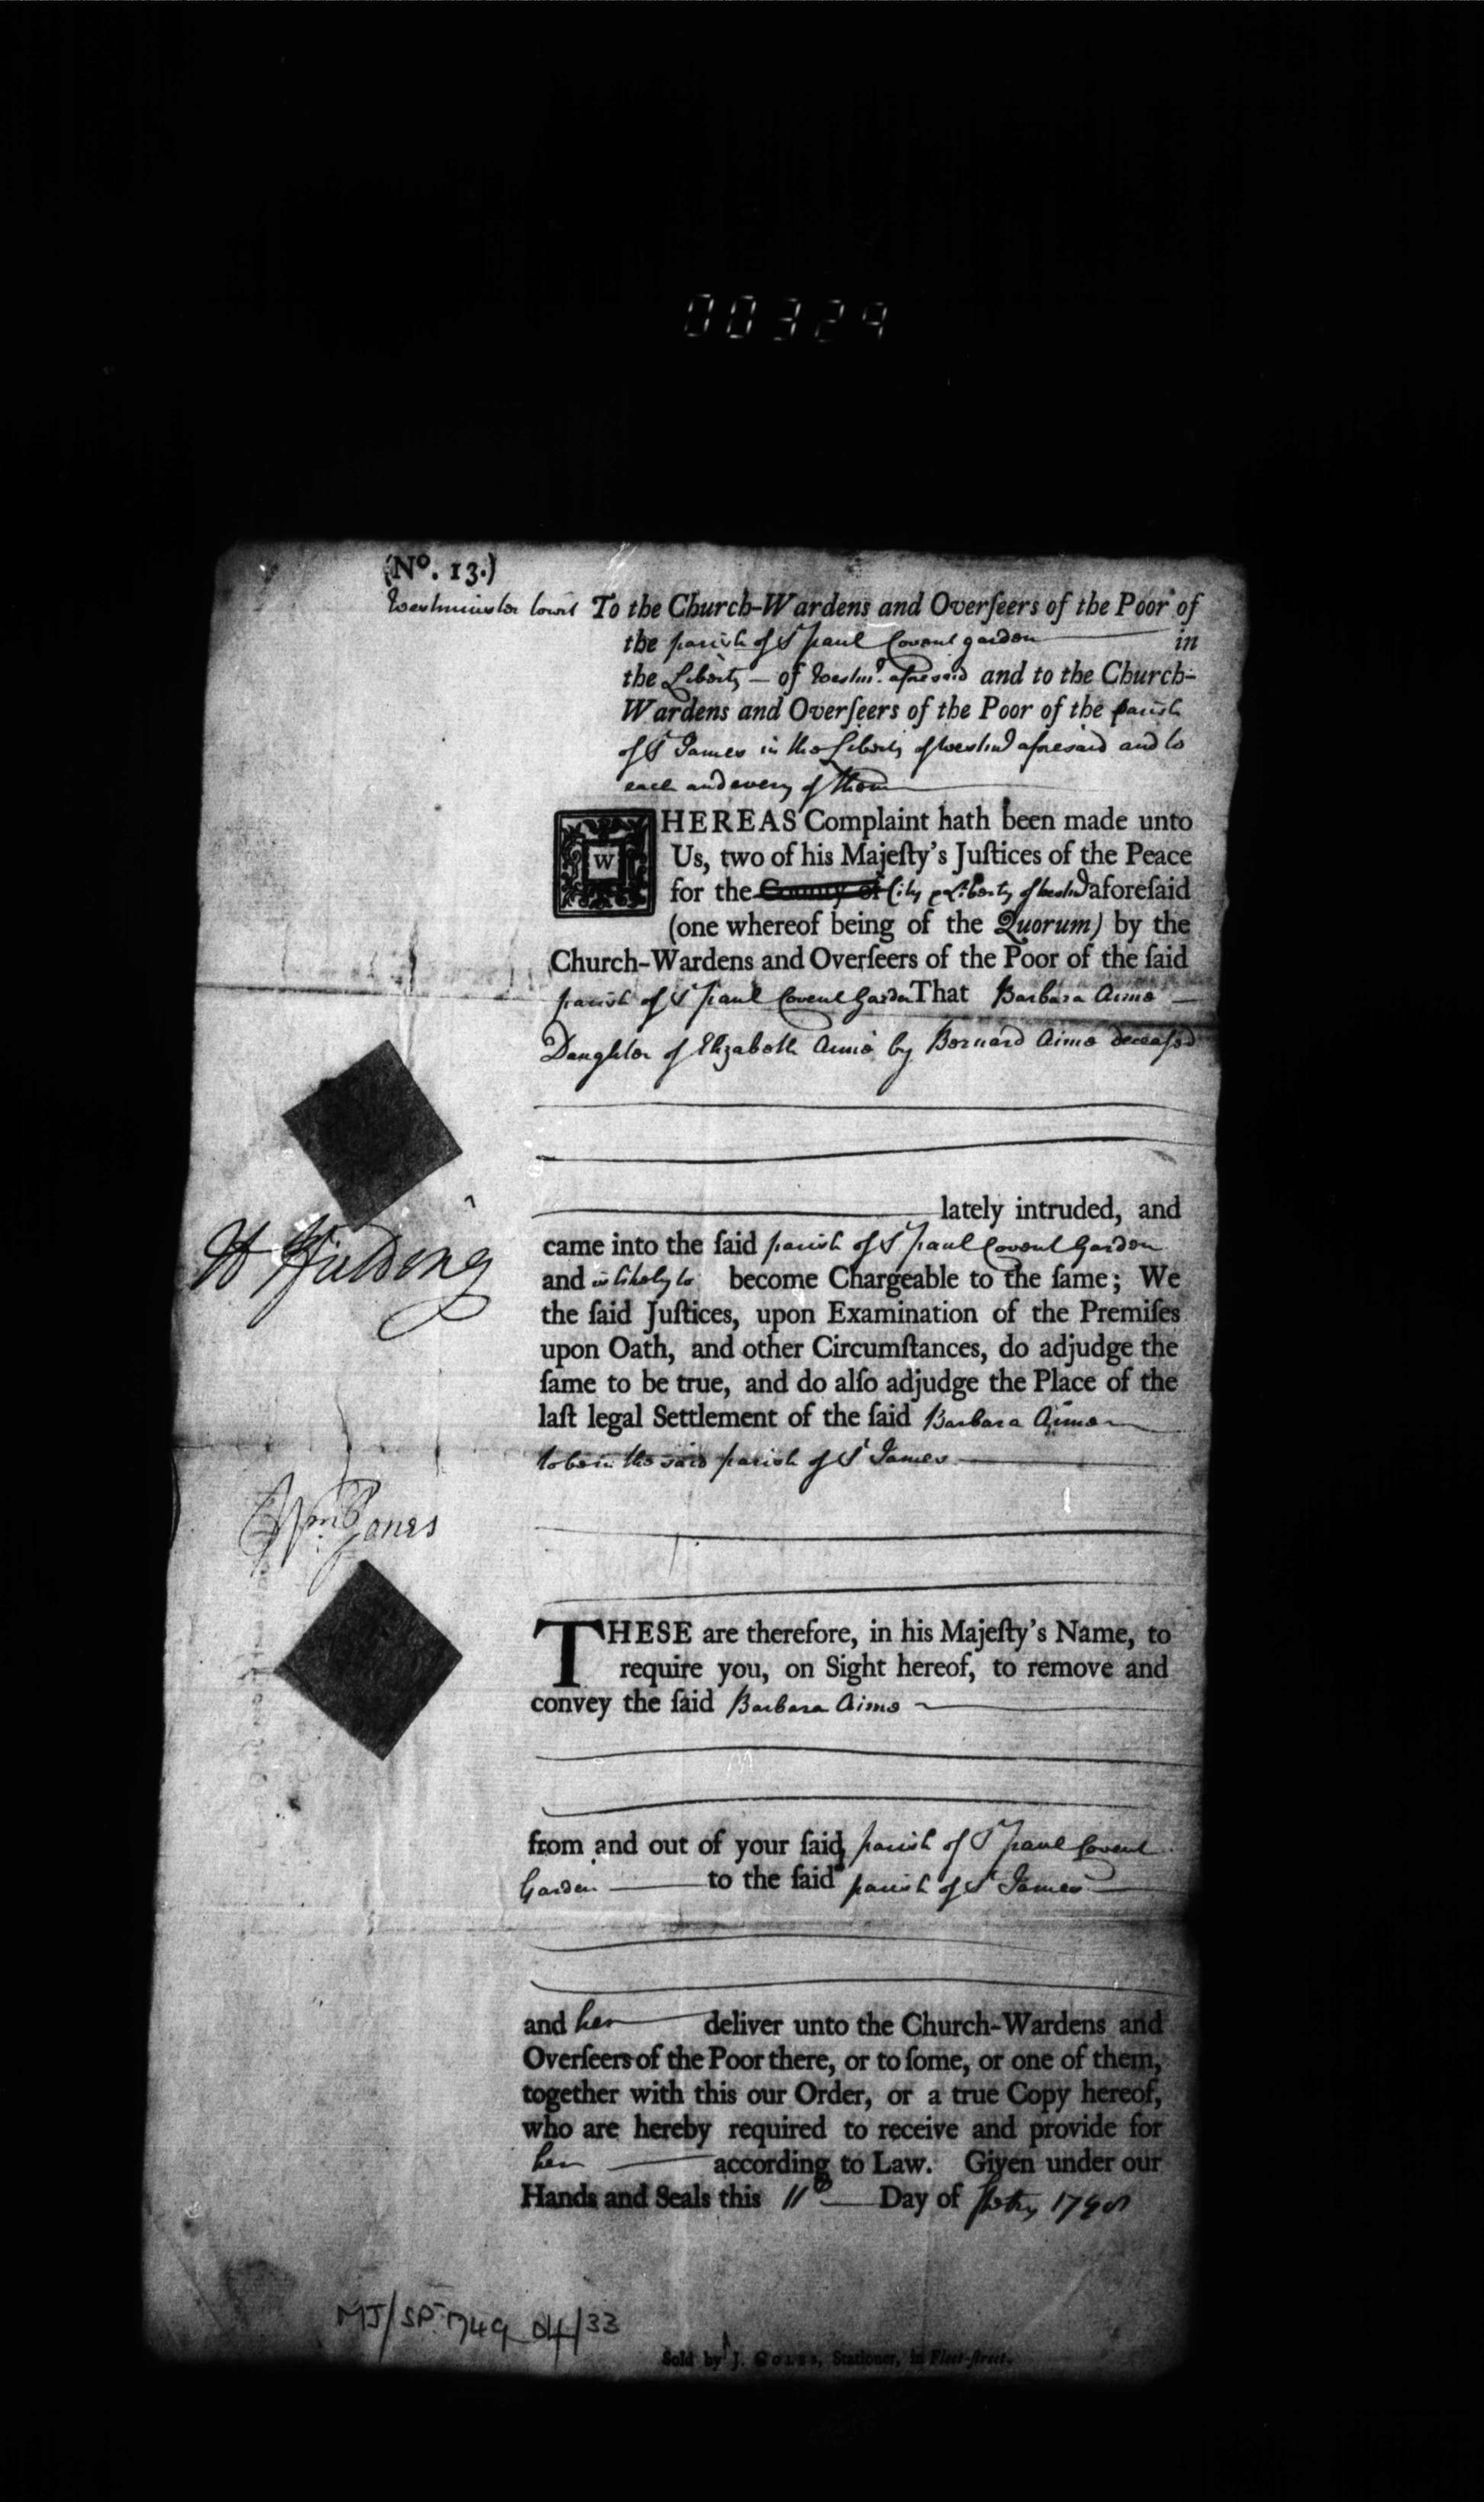 00329
(No. 13.)
Westminster towit To the Church-Wardens and Overſeers of the Poor of
the parish of St paul Covent garden in
the Liberty of Westmr. aforesaid and to the Church-
Wardens and Overſeers of the Poor of the parish
of St James in the Liberty of Westmr aforesaid and to
each and every of them
WHEREAS Complaint hath been made unto
Us, two of his Majeſty's Juſtices of the Peace
for the County of City & Liberty of Westmr aforeſaid
(one whereof being of the Quorum) by the
Church-Wardens and Overſeers of the Poor of the ſaid
parish of St paul Covent Garden That Barbara Aimo
Daughter of Elizabeth Aimo by Bernard Aimo deceased
lately intruded, and
came into the ſaid parish of St paul Covent Garden
and is likely to become Chargeable to the ſame; We
the ſaid Juſtices, upon Examination of the Premiſes
upon Oath, and other Circumſtances, do adjudge the
ſame to be true, and do alſo adjudge the Place of the
laſt legal Settlement of the ſaid Barbara Aimo
to be in the said parish of St James
H Ffielding
Wm Jones
THESE are therefore, in his Majeſty's Name, to
require you, on Sight hereof, to remove and
convey the ſaid Barbara Aimo
from and out of your ſaid parish of St paul Covent
Garden to the ſaid parish of St James
and her deliver unto the Church-Wardens and
Overſeers of the Poor there, or to ſome, or one of them,
together with this our Order, or a true Copy hereof,
who are hereby required to receive and provide for
her according to Law. Given under our
Hands and Seals this 11th Day of 
MJ/SP. 1749 04/33
Sold by J. Stationer, in Fleet-ſtreet.